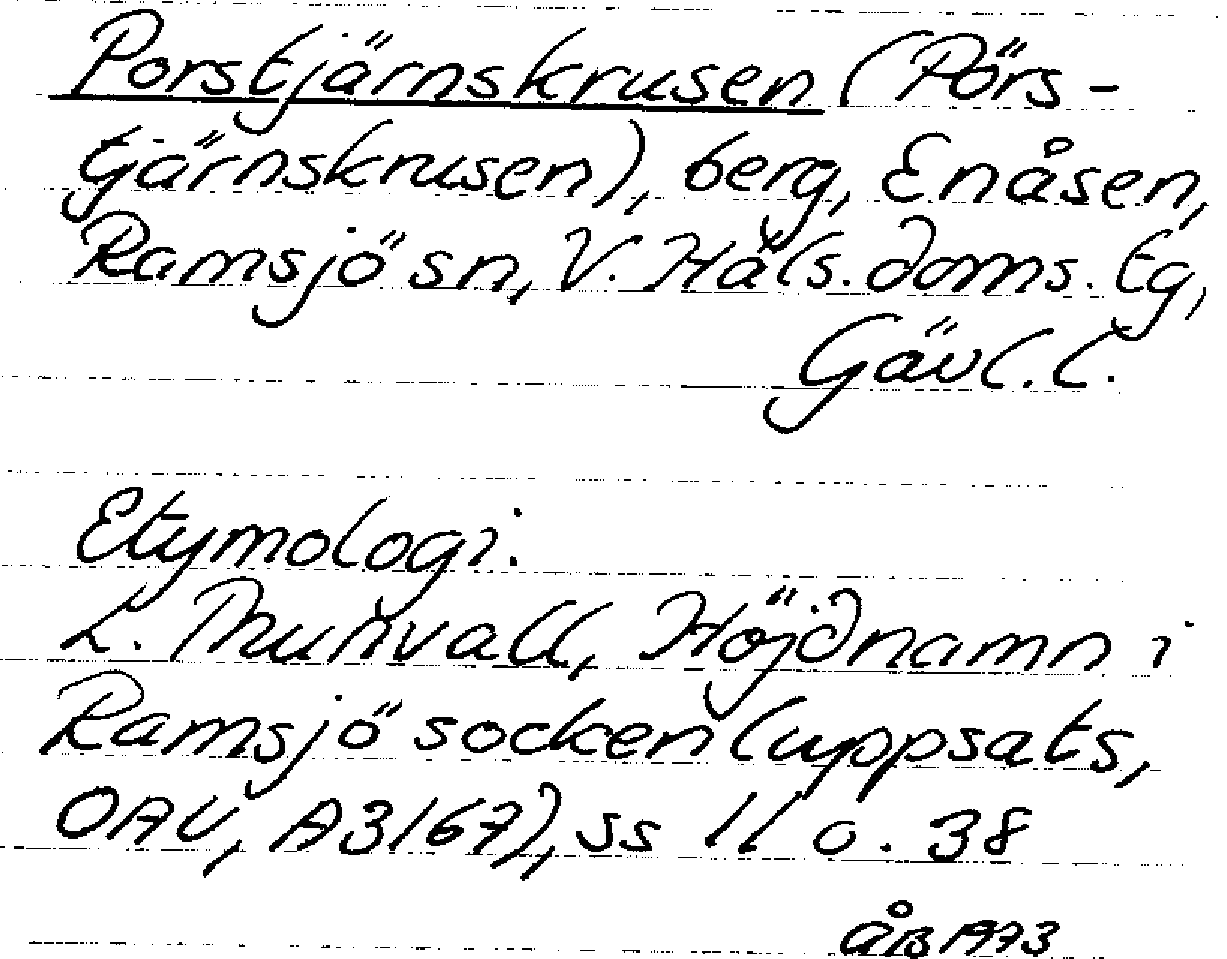 Porstjärnskrusen (Pörs-
tjärnskrusen), berg, Enåsen,
Ramsjö sn, V. Häls. doms. tg,
Gävl. l.
Etymologi.
L. Thunvall, Höjdnamn i
Ramsjö socken (uppsats,
OAU, A3167), ss 11 o. 38
ÅB 1973